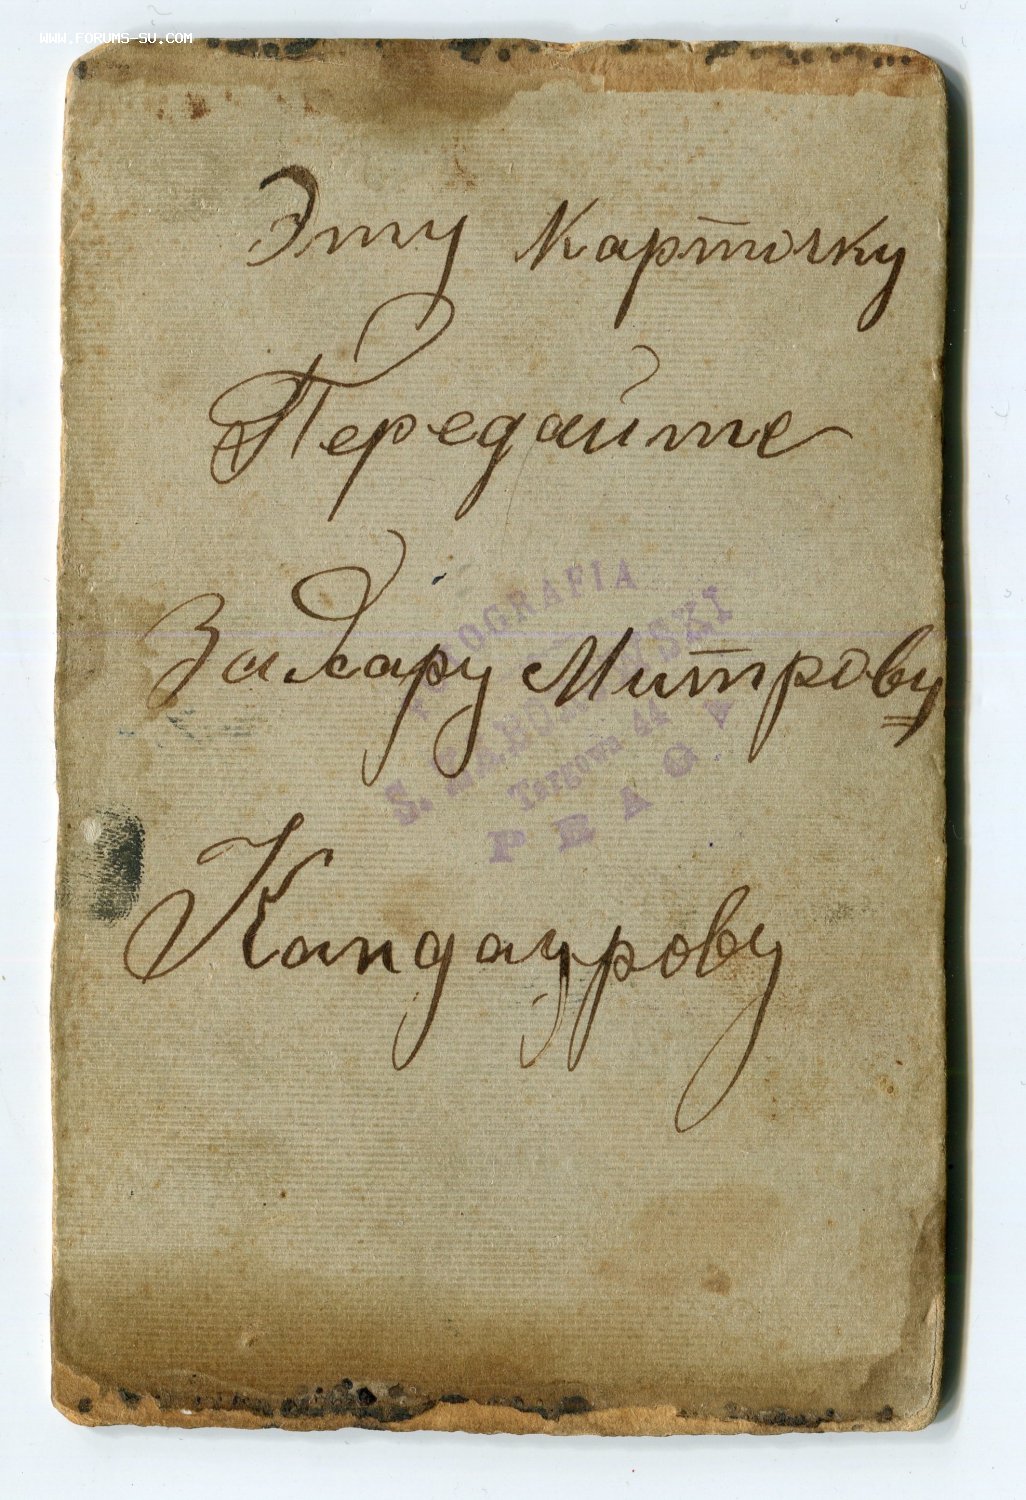 WWW.FORUMS-SU.COM
Эту Карточку
Передайте
Захару Митрову
Кандаурову
FOTOGRAFIA
S.
Targowa 44
PRAGA